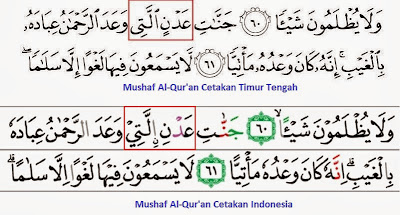 وَلَا يُظْلَمُونَ شَيْـًٔا ۝٦٠ جَنَّٰتِ عَدْنٍ ٱلَّتِى وَعَدَ ٱلرَّحْمَٰنُ عِبَادَهُۥ
بِٱلْغَيْبِ ۚ إِنَّهُۥ كَانَ وَعْدُهُۥ مَأْتِيًّا ۝٦١ لَّا يَسْمَعُونَ فِيهَا لَغْوًا إِلَّا سَلَٰمًا ۖ
Mushaf Al-Qur'an Cetakan Timur Tengah
وَلَا يُظْلَمُوْنَ شَيْـًٔا ۙ ۝٦٠ جَنّٰتِ عَدْنِ ِۨالَّتِيْ وَعَدَ الرَّحْمٰنُ عِبَادَهٗ
بِالْغَيْبِۗ اِنَّهٗ كَانَ وَعْدُهٗ مَأْتِيًّا ۝٦١ لَا يَسْمَعُوْنَ فِيْهَا لَغْوًا اِلَّا سَلٰمًاۗ
Mushaf Al-Qur'an Cetakan Indonesia